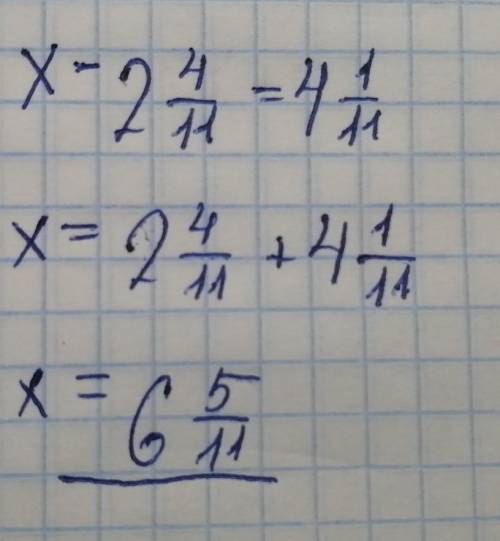 x - 2 4/11 = 4 1/11
x = 2 4/11 + 4 1/11
x = 6 5/11